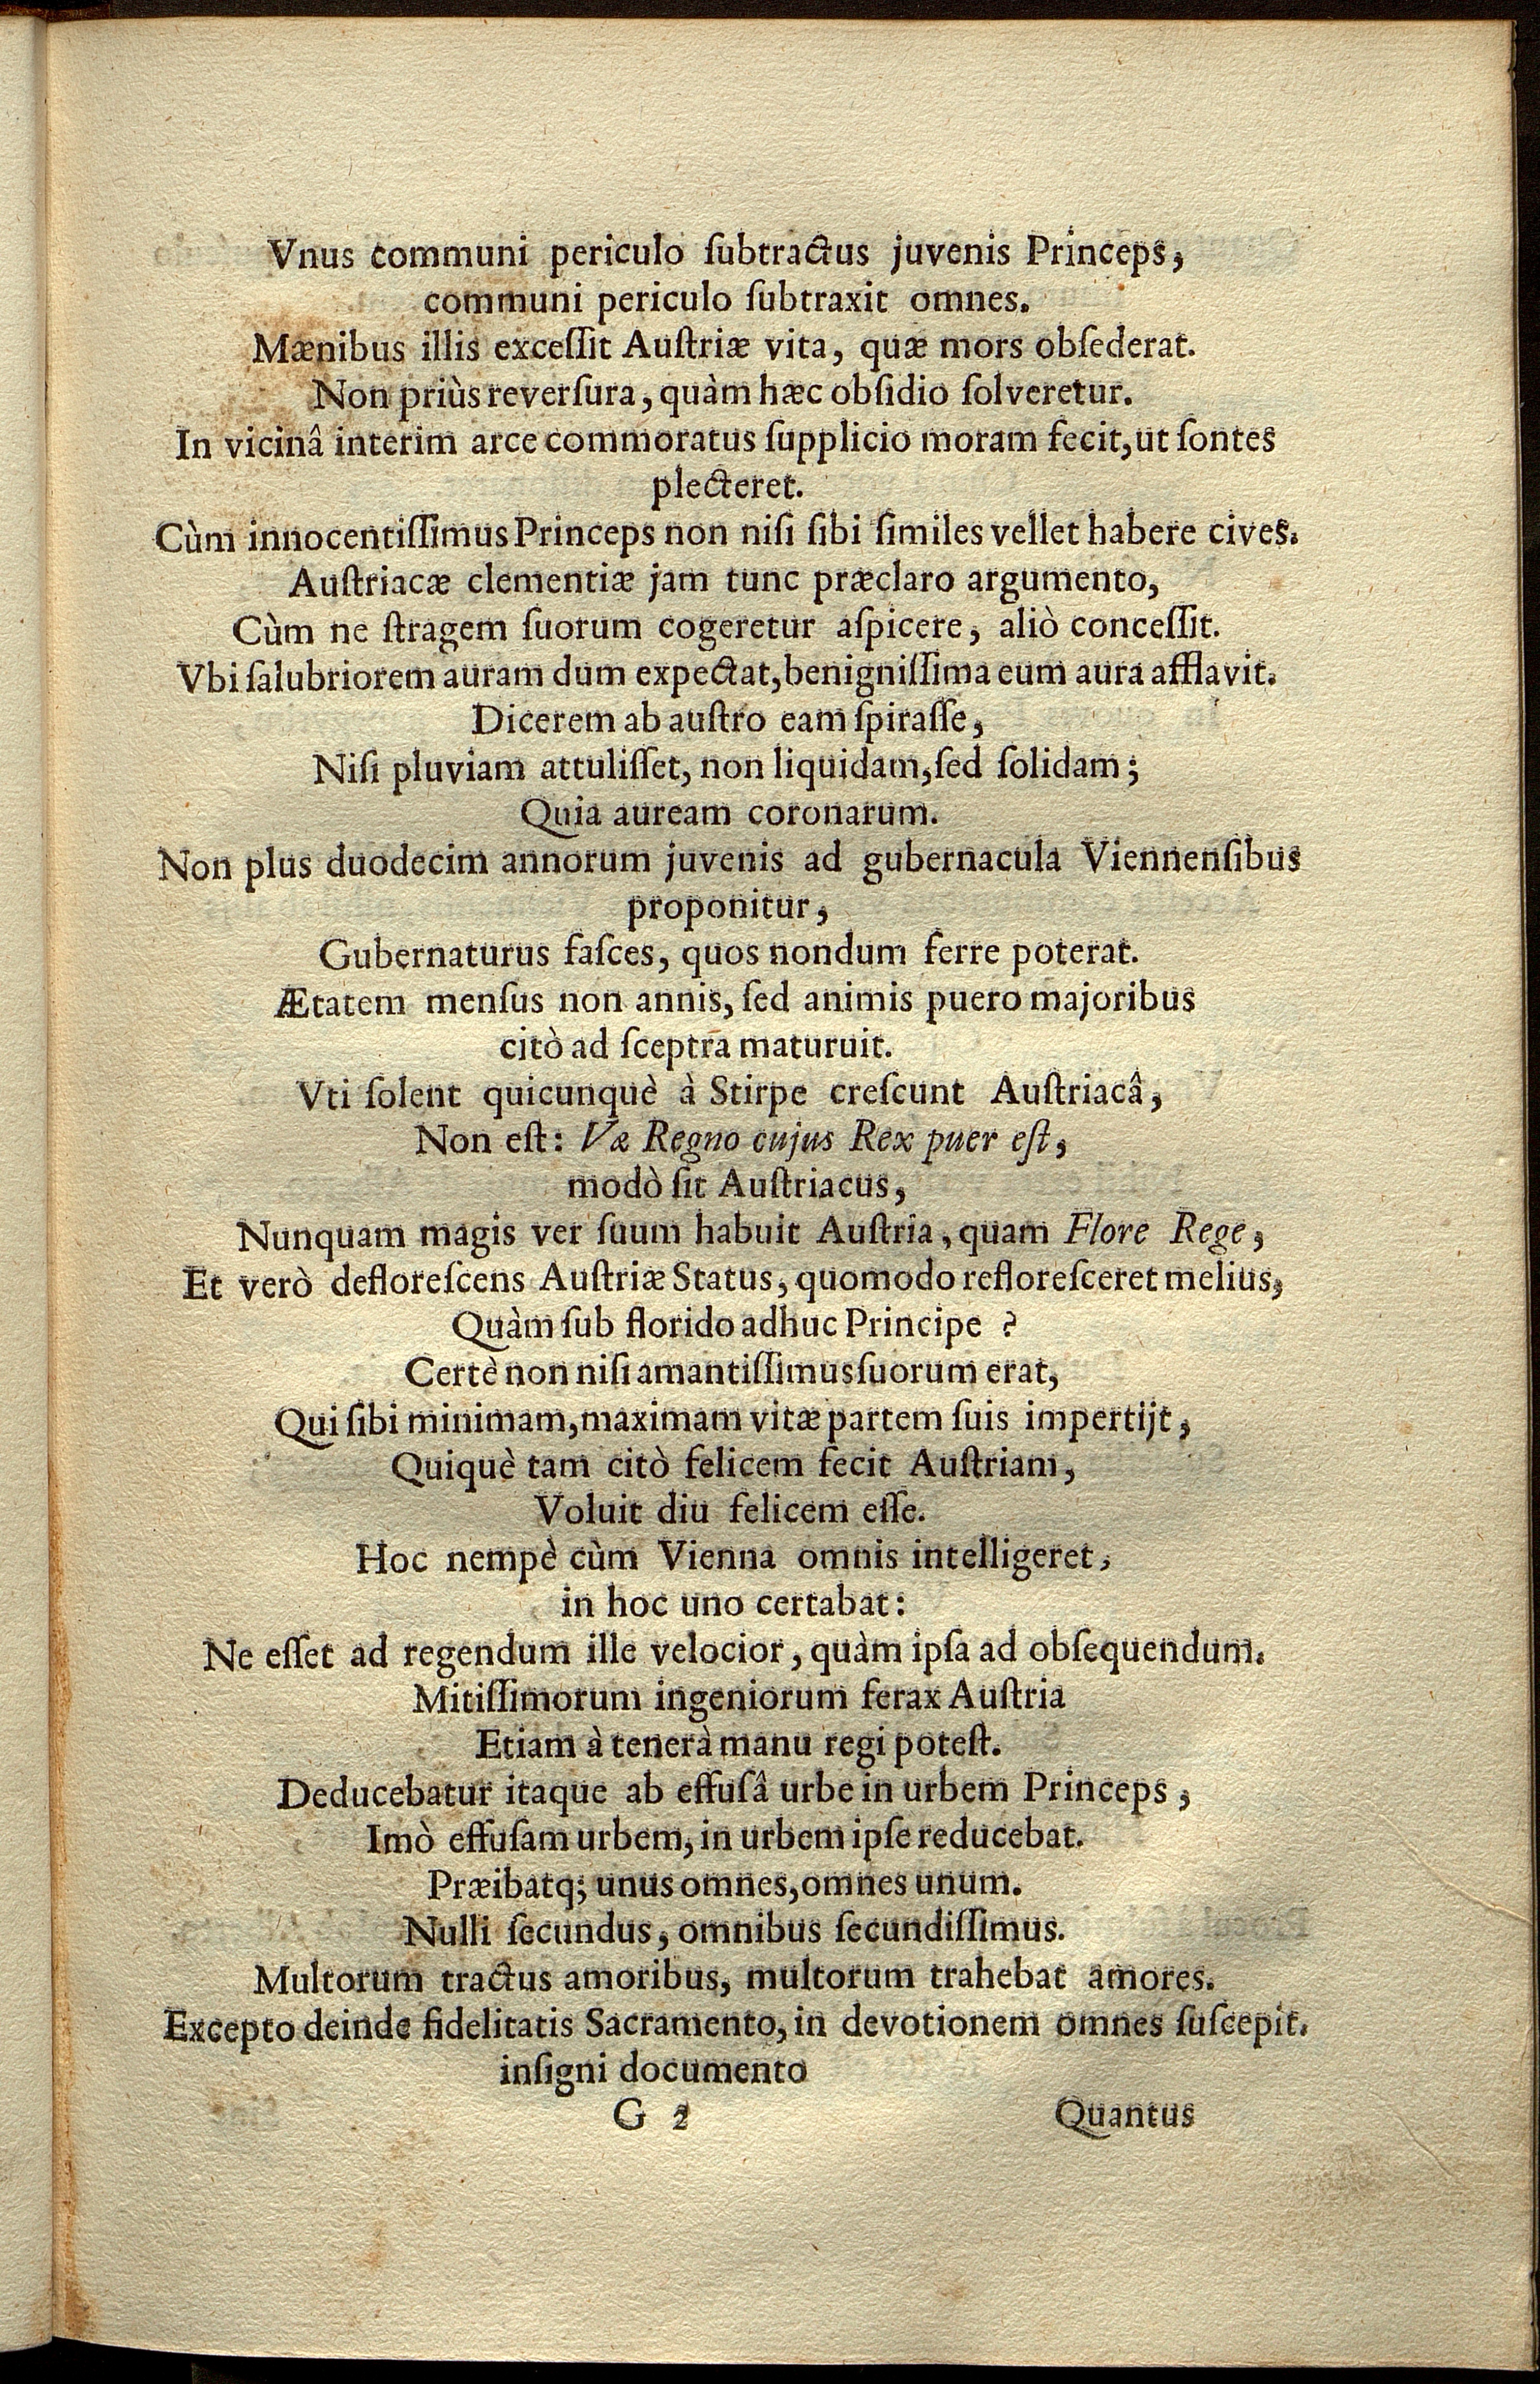 Vnus communi periculo ſubtractus juvenis Princeps,
communi periculo ſubtraxit omnes.
Mænibus illis exceſſit Auſtriæ vita, quæ mors obſederat.
Non priùs reverſura, quàm hæc obſidio ſolveretur.
In vicinâ interim arce commoratus ſupplicio moram fecit, ut ſontes
plecteret.
Cùm innocentiſſimus Princeps non niſi ſibi ſimiles vellet habere cives.
Auſtriacæ clementiæ jam tunc præclaro argumento,
Cùm ne ſtragem ſuorum cogeretur aſpicere, aliò conceſſit.
Vbi ſalubriorem auram dum expectat, benigniſſima eum aura afflavit.
Dicerem ab auſtro eam ſpiraſſe,
Niſi pluviam attuliſſet, non liquidam, ſed ſolidam;
Quia auream coronarum.
Non plus duodecim annorum juvenis ad gubernacula Viennenſibus
proponitur,
Gubernaturus faſces, quos nondum ferre poterat.
Ætatem menſus non annis, ſed animis puero majoribus
citò ad ſceptra maturuit.
Vti ſolent quicunquè à Stirpe creſcunt Auſtriacâ,
Non eſt: Væ Regno cujus Rex puer eſt,
modò ſit Auſtriacus,
Nunquam magis ver ſuum habuit Auſtria, quam Flore Rege,
Et verò defloreſcens Auſtriæ Status, quomodo refloreſceret melius,
Quàm ſub florido adhuc Principe ?
Certè non niſi amantiſſimus ſuorum erat,
Qui ſibi minimam, maximam vitæ partem ſuis impertijt,
Quiquè tam citò felicem fecit Auſtriam,
Voluit diu felicem eſſe.
Hoc nempè cùm Vienna omnis intelligeret,
in hoc uno certabat:
Ne eſſet ad regendum ille velocior, quàm ipſa ad obſequendum.
Mitiſſimorum ingeniorum ferax Auſtria
Etiam à tenerà manu regi poteſt.
Deducebatur itaque ab effuſâ urbe in urbem Princeps,
Imò effuſam urbem, in urbem ipſe reducebat.
Præibatq; unus omnes, omnes unum.
Nulli ſecundus, omnibus ſecundiſſimus.
Multorum tractus amoribus, multorum trahebat amores.
Excepto deinde fidelitatis Sacramento, in devotionem omnes ſuſcepit.
inſigni documento
G 2 Quantus